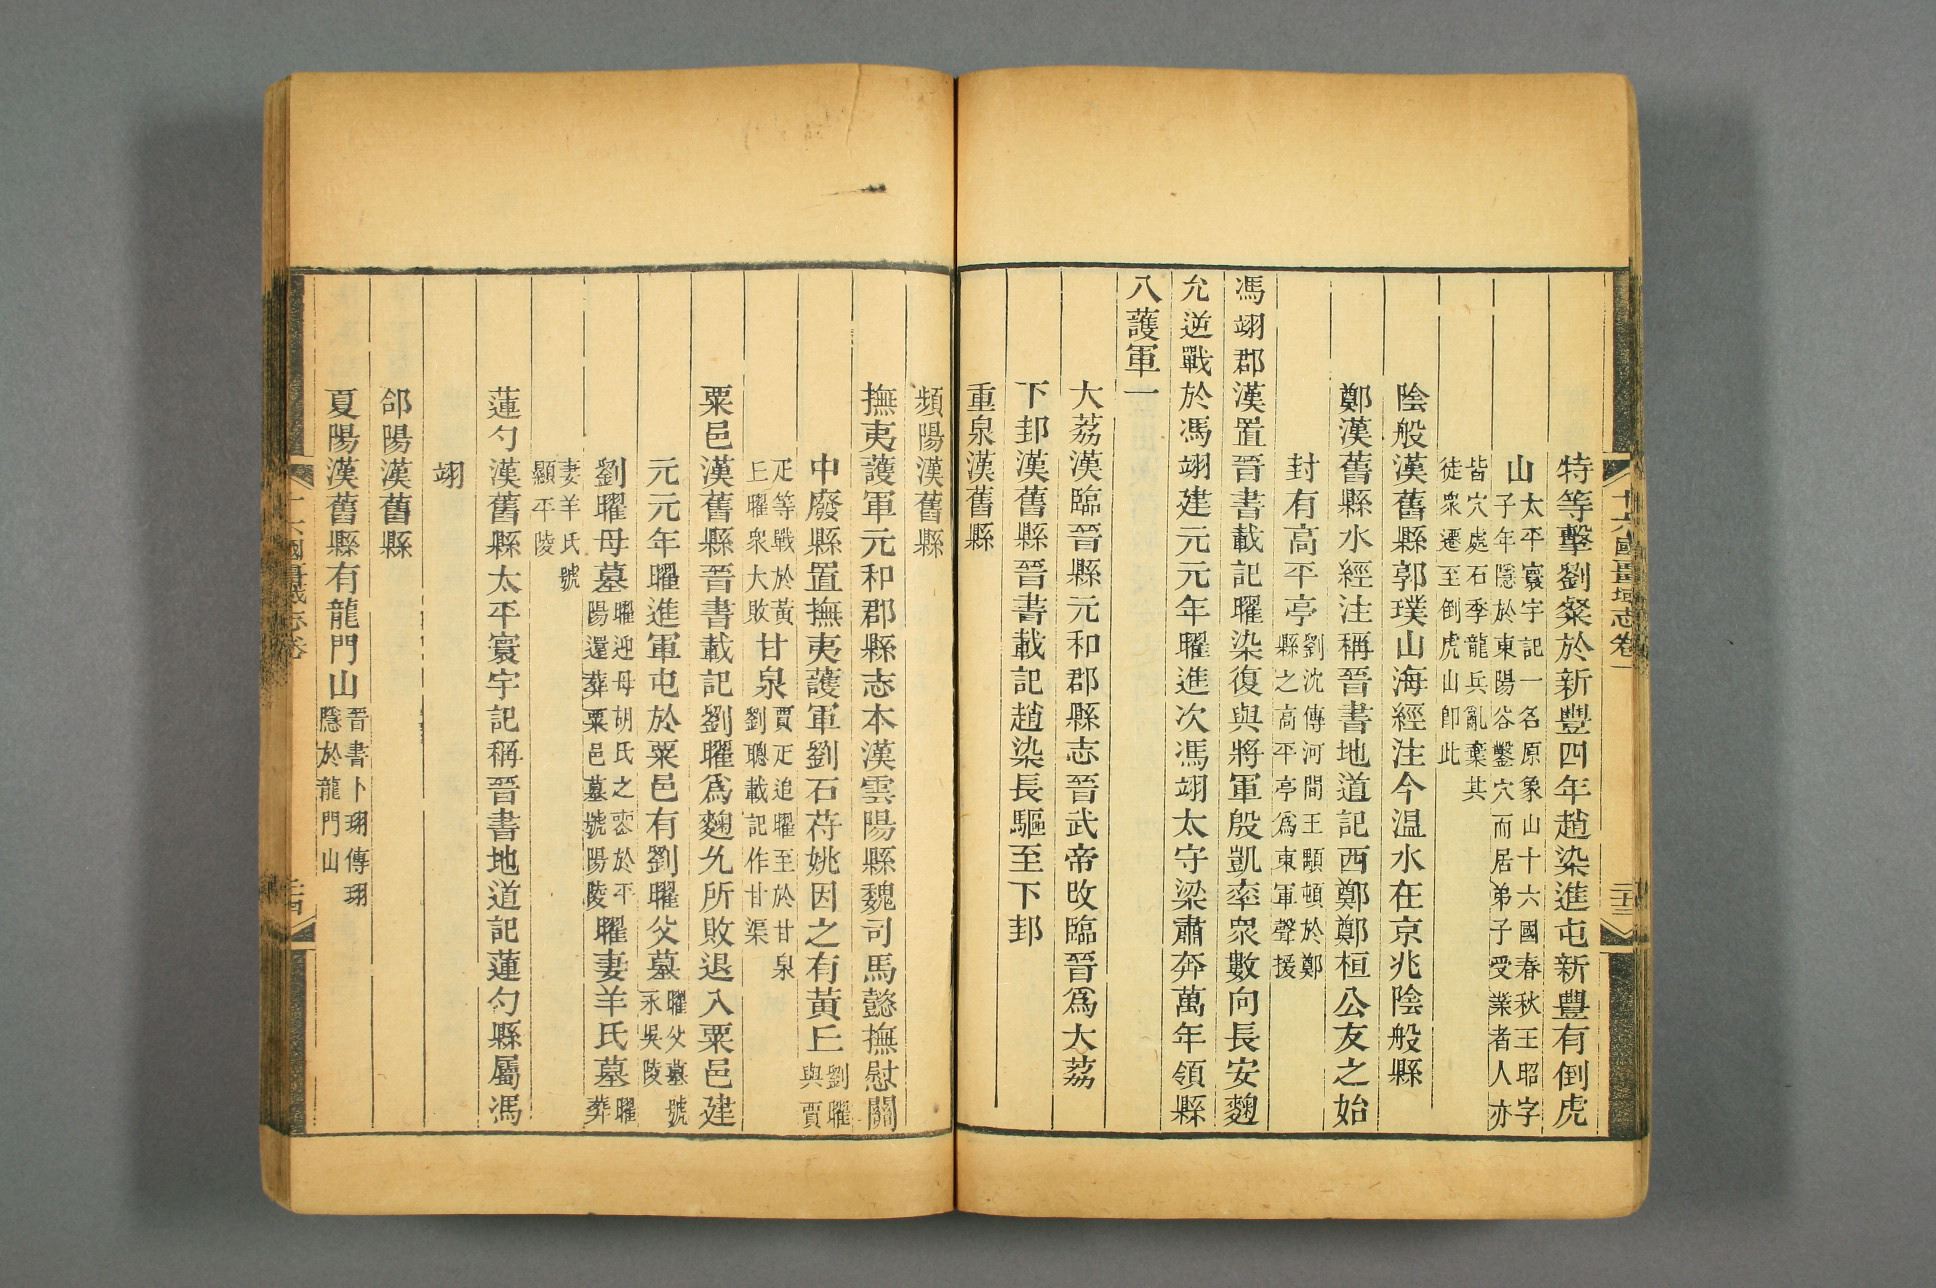 十六國畺域志卷一
特等擊劉粲於新豐四年趙染進屯新豐有倒虎
山太平寰宇記一名原象山十六國春秋王昭字
子年隱於東陽谷鑿穴而居弟子受業者人亦
皆穴處石季龍兵亂棄其
徒衆遷至倒虎山卽此
陰般漢舊縣郭璞山海經注今温水在京兆陰般縣
鄭漢舊縣水經注稱晉書地道記西鄭鄭桓公友之始
封有高平亭劉沈傳河間王顒頓於鄭
縣之高平亭爲東軍聲援
馮翊郡漢置晉書載記曜染復與將軍殷凱率衆數向長安麴
允逆戰於馮翊建元元年曜進次馮翊太守梁肅奔萬年領縣
八護軍一
大荔漢臨晉縣元和郡縣志晉武帝改臨晉爲大荔
下邽漢舊縣晉書載記趙染長驅至下邽
重泉漢舊縣
頻陽漢舊縣
撫夷護軍元和郡縣志本漢雲陽縣魏司馬懿撫慰關
中廢縣置撫夷護軍劉石苻姚因之有黃丘劉曜
與賈
疋等戰於黃
丘曜衆大敗甘泉賈疋追曜至於甘泉
劉聰載記作甘渠
粟邑漢舊縣晉書載記劉曜爲麴允所敗退入粟邑建
元元年曜進軍屯於粟邑有劉曜父墓曜父墓號
永吳陵
劉曜母墓曜迎母胡氏之喪於平
陽還葬粟邑墓號陽陵曜妻羊氏墓曜
葬
妻羊氏號
顯平陵
蓮勺漢舊縣太平寰宇記稱晉書地道記蓮勺縣屬馮
翊
郃陽漢舊縣
夏陽漢舊縣有龍門山晉書卜珝傳珝
隱於龍門山